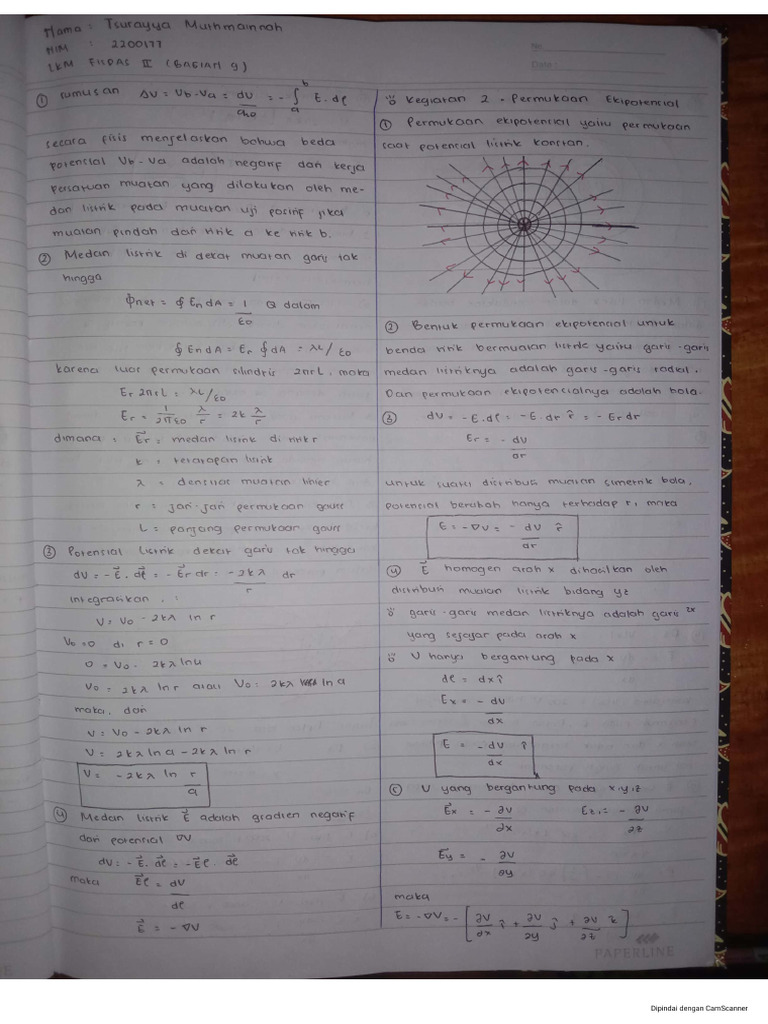 Nama : Tsurayya Muthmainnah
NIM : 2200177
LKM FISDAS II (BAGIAN 9)
No.
Date :
① rumusan ΔV = Vb - Va = dV/q₀ = - ∫ₐᵇ E. dℓ
secara fisis menjelaskan bahwa beda
potensial Vb - Va adalah negatif dari kerja
persatuan muatan yang dilakukan oleh me-
dan listrik pada muatan uji positif jika
muatan pindah dari titik a ke titik b.
② Medan listrik di dekat muatan garis tak
hingga
Φnet = ∮ En dA = 1/ε0 Q dalam
∮ En dA = Er ∮ dA = λL/ε0
karena luas permukaan silindris 2πrL, maka
Er 2πrL = λL/ε0
Er = 1/2πε0 λ/r = 2k λ/r
dimana : E⃗r = medan listrik di titik r
k = tetapan listrik
λ = densitas muatan linier
r = jari-jari permukaan gauss
L = panjang permukaan gauss
③ Potensial listrik dekat garis tak hingga
dV = - E⃗ . dℓ⃗ = - E⃗r dr = - 2kλ/r dr
integrasikan :
V = V₀ - 2kλ ln r
V₀ = 0 di r = 0
0 = V₀ - 2kλ ln
V₀ = 2kλ ln r atau V₀ = 2kλ ln a
maka, dari
V = V₀ - 2kλ ln r
V = 2kλ ln a - 2kλ ln r
V = - 2kλ ln r/a
④ Medan listrik E⃗ adalah gradien negatif
dari potensial ∇V
dV = - E⃗ . dℓ⃗ = - E⃗ℓ . dℓ⃗
maka E⃗ℓ = dV/dℓ
E⃗ = - ∇V
Kegiatan 2 - Permukaan Ekipotensial
① Permukaan ekipotensial yaitu permukaan
saat potensial listrik konstan.
② Bentuk permukaan ekipotensial untuk
benda titik bermuatan listrik yaitu garis-garis
medan listriknya adalah garis-garis radial.
Dan permukaan ekipotensialnya adalah bola.
③ dV = - E . dℓ = - E . dr r̂ = - Er dr
Er = - dV/dr
untuk suatu distribusi muatan simetrik bola,
potensial berubah hanya terhadap r, maka
E = - ∇V = - dV/dr r̂
④ E⃗ homogen arah x dihasilkan oleh
distribusi muatan listrik bidang yz
garis-garis medan listriknya adalah garis 2x
yang sejajar pada arah x
V hanya bergantung pada x
dℓ = dx î
Ex = - dV/dx
E = - dV/dx î
⑤ V yang bergantung pada x,y,z
E⃗x = - ∂V/∂x Ez = - ∂V/∂z
E⃗y = - ∂V/∂y
maka
E = - ∇V = - [∂V/∂x î + ∂V/∂y ĵ + ∂V/∂z k̂]
PAPERLINE
Dipindai dengan CamScanner